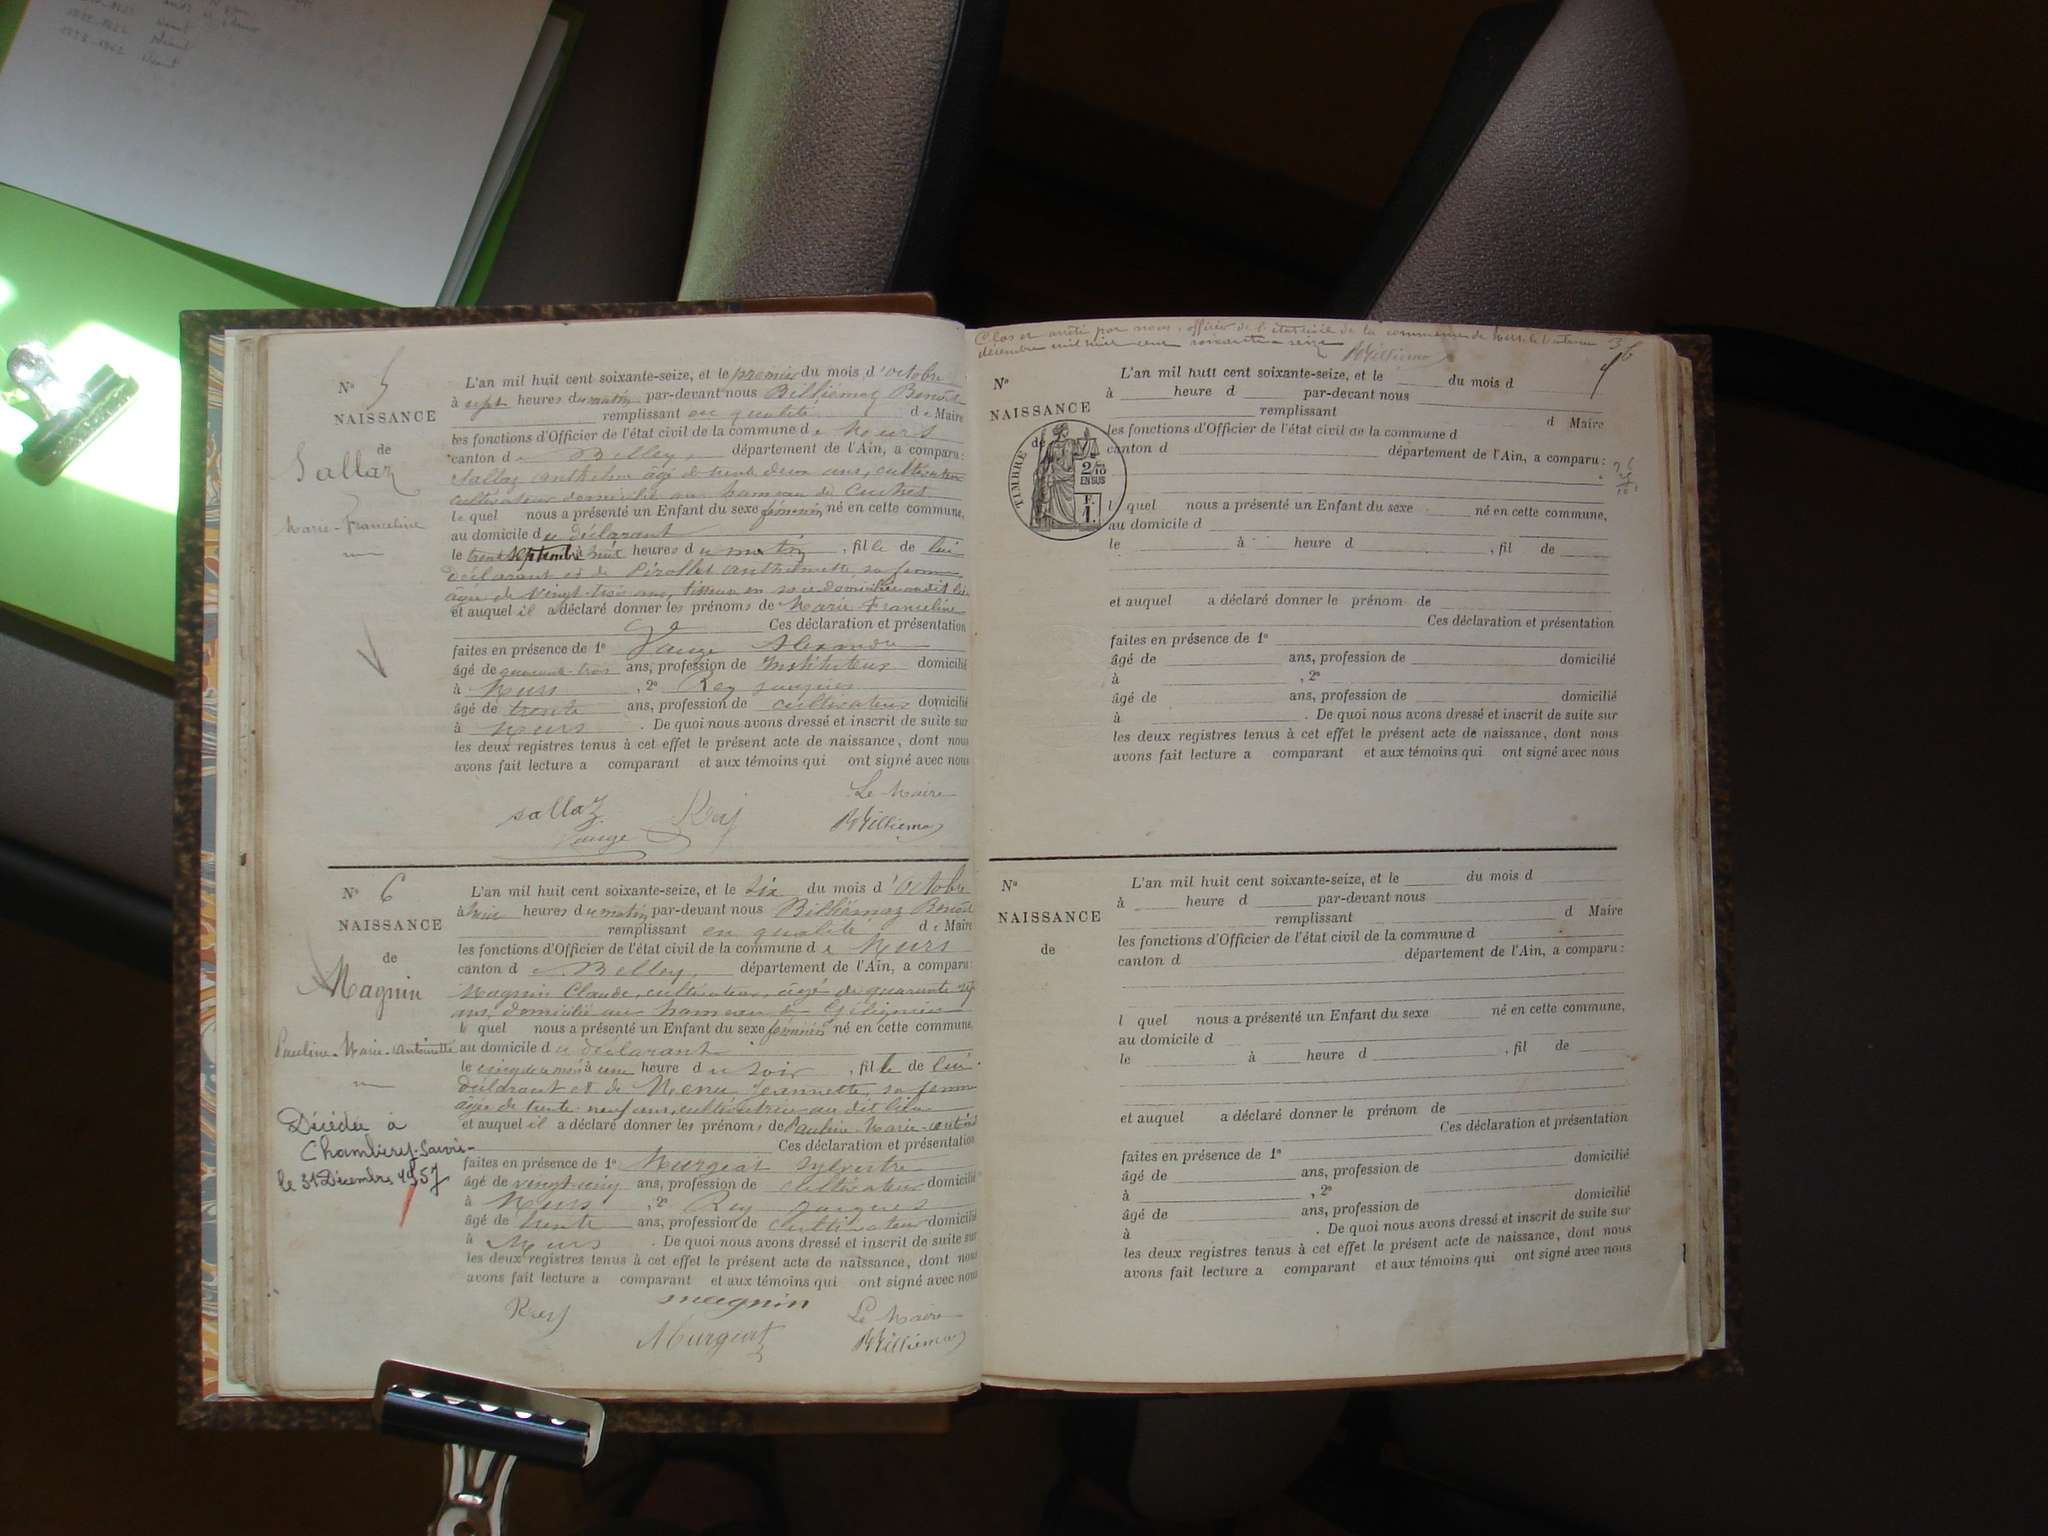 Néant
Néant
Néant
N° 5
NAISSANCE
de
Sallaz
Marie-Franceline
L'an mil huit cent soixante-seize, et le premier du mois d'octobre
à sept heures du matin par-devant nous Billiemaz Benoît
remplissant en qualité de Maire
les fonctions d'Officier de l'état civil de la commune de
canton de Belley, département de l'Ain, a comparu:
Sallaz Anthelme âgé de trente deux ans, cultivateur
cultivateur domicilié au hameau de
lequel nous a présenté un Enfant du sexe féminin, né en cette commune,
au domicile du déclarant
le trente septembre à heures du matin, fille de lui
déclarant et de Anthelmette sa femme
âgée de vingt-trois ans,
et auquel il a déclaré donner les prénoms de Marie Franceline
Ces déclaration et présentation
faites en présence de 1° Alexandre
âgé de quarante-trois ans, profession de Instituteur domicilié
à , 2° Rey
âgé de trente ans, profession de cultivateur domicilié
à . De quoi nous avons dressé et inscrit de suite sur
les deux registres tenus à cet effet le présent acte de naissance, dont nous
avons fait lecture a comparant et aux témoins qui ont signé avec nous
Le Maire
sallaz Rey BBilliemaz
N° 6
NAISSANCE
de
Magnin
Pauline-Marie-Antoinette
Décédée à
Chambéry-Savoie-
le 31 Décembre 1957
L'an mil huit cent soixante-seize, et le six du mois d'octobre
à heures du matin, par-devant nous Billiemaz Benoît
remplissant en qualité de Maire
les fonctions d'Officier de l'état civil de la commune de
canton de Belley, département de l'Ain, a comparu:
Magnin Claude, cultivateur, âgé de quarante
ans, domicilié au hameau de
lequel nous a présenté un Enfant du sexe féminin né en cette commune,
au domicile du déclarant
le cinq de ce mois à une heure du soir, fille de lui
déclarant et de Jeannette, sa femme
âgée de trente-neuf ans, cultivatrice au dit lieu
et auquel il a déclaré donner les prénoms de Pauline-Marie-
Ces déclaration et présentation
faites en présence de 1° Murgeat Sylvestre
âgé de vingt-cinq ans, profession de cultivateur domicilié
à , 2° Rey Jacques
âgé de trente ans, profession de cultivateur domicilié
à . De quoi nous avons dressé et inscrit de suite sur
les deux registres tenus à cet effet le présent acte de naissance, dont nous
avons fait lecture a comparant et aux témoins qui ont signé avec nous
Rey magnin Le Maire
Murgeat BBilliemaz
Clos et arrêté par nous, officier de l'état civil de la commune de
décembre mil huit cent soixante seize BBilliemaz
N°
NAISSANCE
de
TIMBRE
2/10
EN SUS
F.
1.
L'an mil huit cent soixante-seize, et le du mois d
à heure d par-devant nous
remplissant d Maire
les fonctions d'Officier de l'état civil de la commune d
canton d département de l'Ain, a comparu:
l quel nous a présenté un Enfant du sexe né en cette commune,
au domicile d
le à heure d , fil de
et auquel a déclaré donner le prénom de
Ces déclaration et présentation
faites en présence de 1°
âgé de ans, profession de domicilié
à , 2°
âgé de ans, profession de domicilié
à . De quoi nous avons dressé et inscrit de suite sur
les deux registres tenus à cet effet le présent acte de naissance, dont nous
avons fait lecture a comparant et aux témoins qui ont signé avec nous
N°
NAISSANCE
de
L'an mil huit cent soixante-seize, et le du mois d
à heure d par-devant nous
remplissant d Maire
les fonctions d'Officier de l'état civil de la commune d
canton d département de l'Ain, a comparu:
l quel nous a présenté un Enfant du sexe né en cette commune,
au domicile d
le à heure d , fil de
et auquel a déclaré donner le prénom de
Ces déclaration et présentation
faites en présence de 1°
âgé de ans, profession de domicilié
à , 2°
âgé de ans, profession de domicilié
à . De quoi nous avons dressé et inscrit de suite sur
les deux registres tenus à cet effet le présent acte de naissance, dont nous
avons fait lecture a comparant et aux témoins qui ont signé avec nous